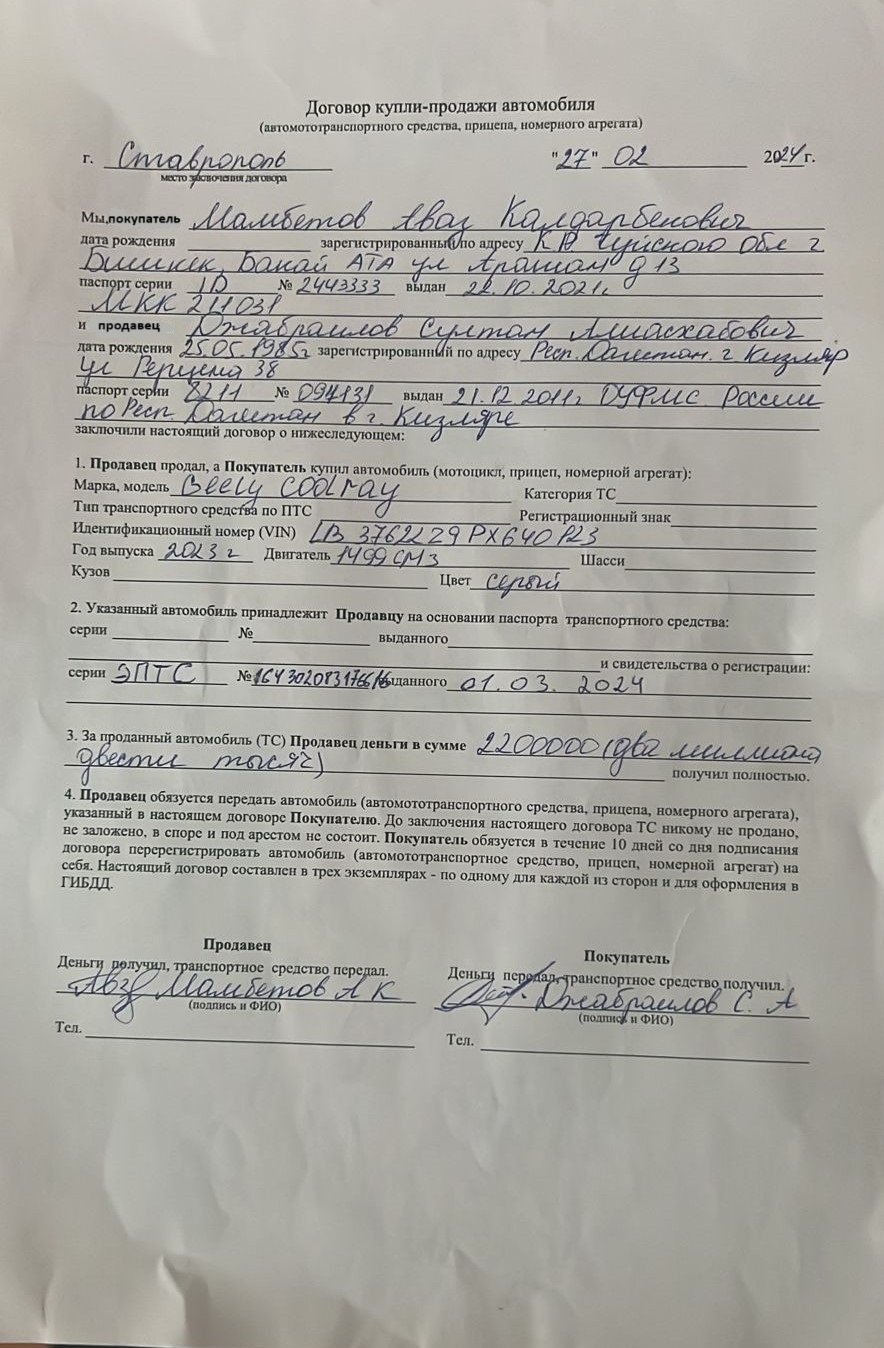 Договор купли-продажи автомобиля
(автомототранспортного средства, прицепа, номерного агрегата)
г. Ставрополь "27" 02 2024 г.
место заключения договора
Мы,покупатель Мамбетов Аваз Калдарбекович
дата рождения зарегистрированный по адресу КР Чуйского обл г
Бишкек, Бакай АТА ул Арашан д 13
паспорт серии ID № 2443333 выдан 22.10.2021г
МКК 211031
и продавец Джабраилов Султан Алиасхабович
дата рождения 25.05.1985г зарегистрированный по адресу Респ. Дагестан. г Кизляр
ул Герцена 38
паспорт серии 8211 № 094131 выдан 21.12.2011г ОУФМС России
по Респ. Дагестан в г. Кизляре
заключили настоящий договор о нижеследующем:
1. Продавец продал, а Покупатель купил автомобиль (мотоцикл, прицеп, номерной агрегат):
Марка, модель Geely coolray Категория ТС
Тип транспортного средства по ПТС Регистрационный знак
Идентификационный номер (VIN)
Год выпуска 2023 г Двигатель 1499 СМ3 Шасси
Кузов Цвет серый
2. Указанный автомобиль принадлежит Продавцу на основании паспорта транспортного средства:
серии № выданного
и свидетельства о регистрации:
серии ЭПТС № выданного 01.03.2024
3. За проданный автомобиль (ТС) Продавец деньги в сумме 2200000 (два миллиона
двести тысяч) получил полностью.
4. Продавец обязуется передать автомобиль (автомототранспортного средства, прицепа, номерного агрегата),
указанный в настоящем договоре Покупателю. До заключения настоящего договора ТС никому не продано,
не заложено, в споре и под арестом не состоит. Покупатель обязуется в течение 10 дней со дня подписания
договора перерегистрировать автомобиль (автомототранспортное средство, прицеп, номерной агрегат) на
себя. Настоящий договор составлен в трех экземплярах - по одному для каждой из сторон и для оформления в
ГИБДД.
Продавец
Деньги получил, транспортное средство передал.
Мамбетов А К
(подпись и ФИО)
Тел.
Покупатель
Деньги передал, транспортное средство получил.
Джабраилов С. А
(подпись и ФИО)
Тел.